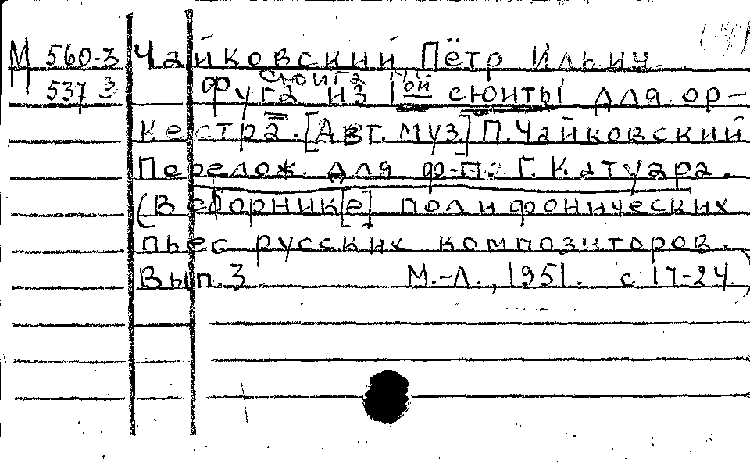 М 560-3 Чайковский Пётр Ильич
П 537 3
Сюита
Фуга из 1ой сюиты для ор-
кестра. [Авт. муз.] П. Чайковский
Перелож. для ф-по Г. Катуара.
(В сборник[е] полифонических
пьес русских композиторов.
Вып. 3 М.-Л., 1951. с 17-24)